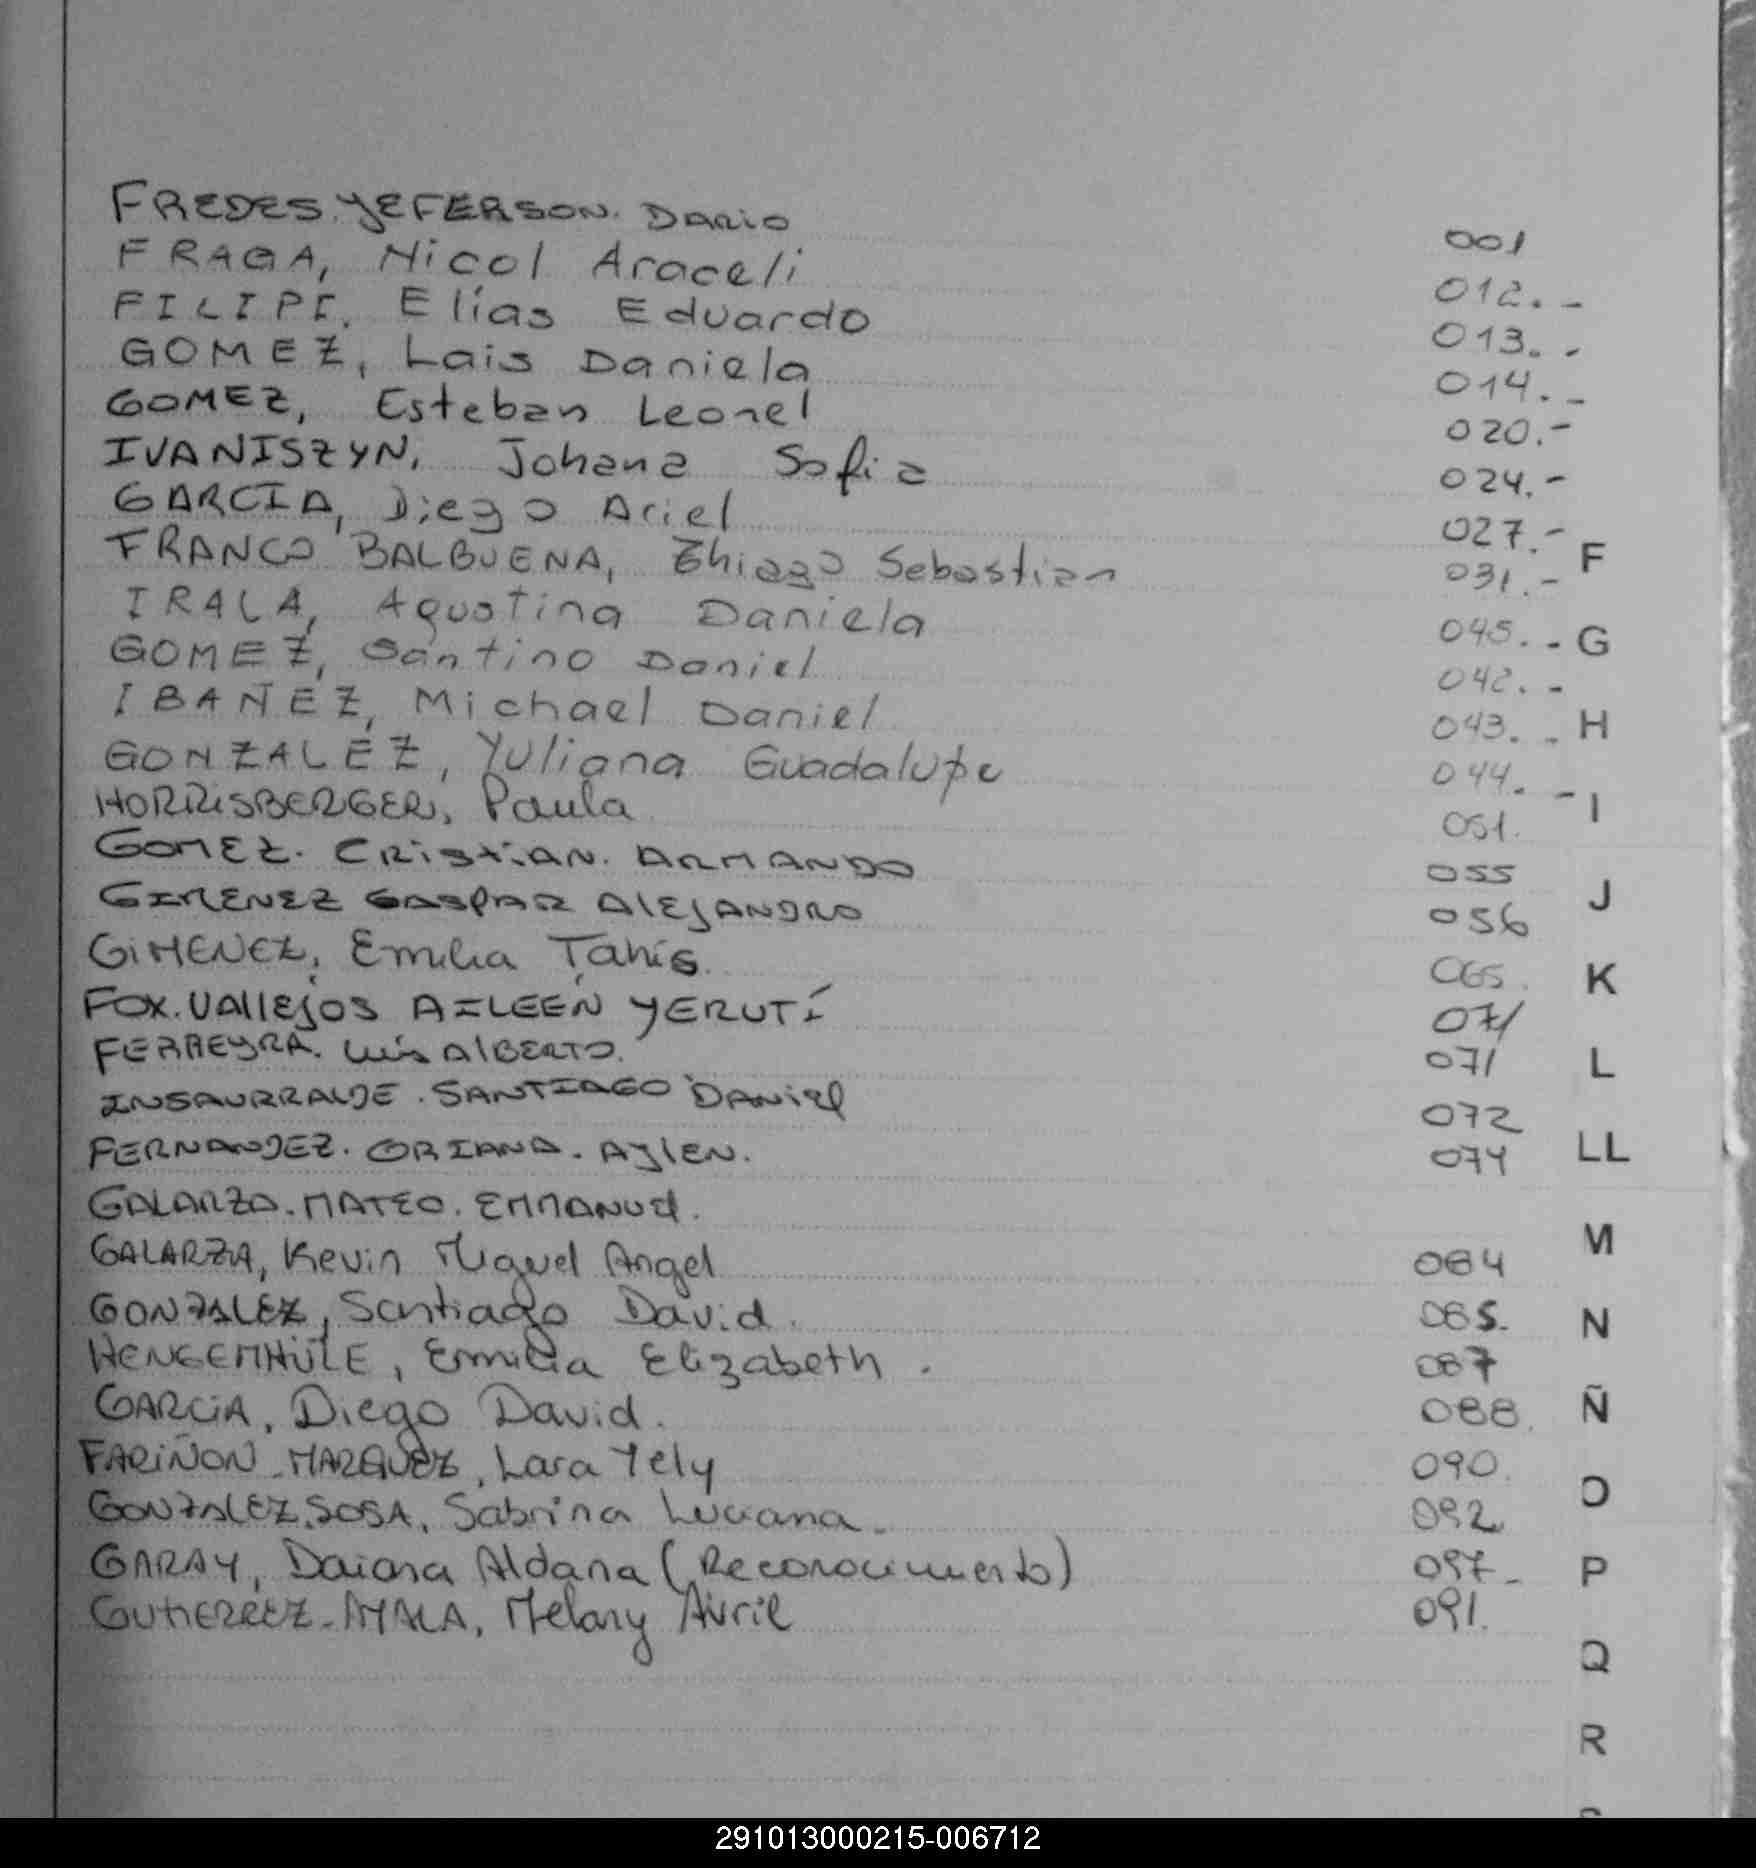 FREDES. YEFERSON. Dario 001
FRAGA, Nicol Araceli 012.-
FILIPI, Elías Eduardo 013.-
GOMEZ, Lais Daniela 014.-
GOMEZ, Esteban Leonel 020.-
IVANISZYN, Johana Sofia 024.-
GARCIA, Diego Ariel 027.-
FRANCO BALBUENA, Thiago Sebastian 031.-
F
IRALA, Agustina Daniela 045.-
G
GOMEZ, Santino Daniel 042.-
IBAÑEZ, Michael Daniel 043.-
H
GONZALEZ, Yuliana Guadalupe 044.-
I
HORRISBERGER, Paula 051.
GOMEZ. CRistiAN. ARMANDO 055
J
GIMENEZ GASPAR AlEJANDRO 056
GiMENEZ, Emilia Tahis. 065.
K
FOX. VAllEjOS AILEEN YERUTÍ 071
FERREYRA. Luis AlBERTO. 071
L
INSAURRALDE. SANTIAGO DANiEl 072
FERNANDEZ. ORIANA. AylEN. 074
LL
GALARZA. MATEO. EMMANUEl.
GALARZA, Kevin Miguel Angel 084
M
GONZALEZ, Santiago David. 085.
N
HENGEMHÜLE, Emilia Elizabeth. 087
GARCiA, Diego David. 088.
Ñ
FARiÑON-MARQUEZ, Lara Yely 090.
O
GONZALEZ.SOSA, Sabrina Luciana. 092
GARAY, Daiana Aldana (Reconocimiento) 097-
P
GUTIERREZ-AYALA, Melany Avril 091.
Q
R
291013000215-006712